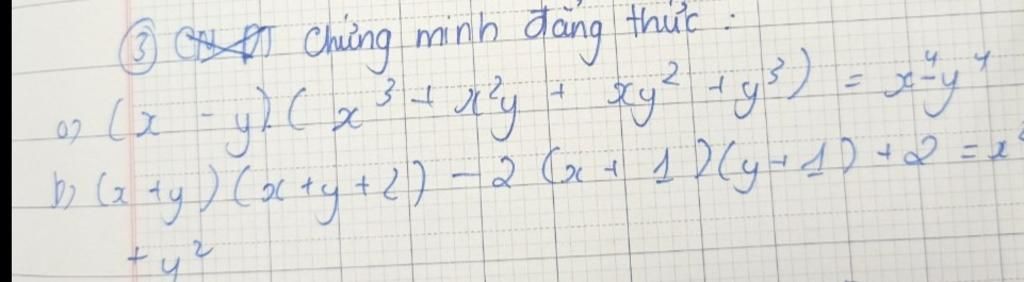 ③ Chứng minh đẳng thức :
a) (x - y).(x³ + x²y + xy² + y³) = x⁴-y⁴
b) (x + y)(x + y + 2) - 2 (x + 1)(y + 1) + 2 = x²
+ y²